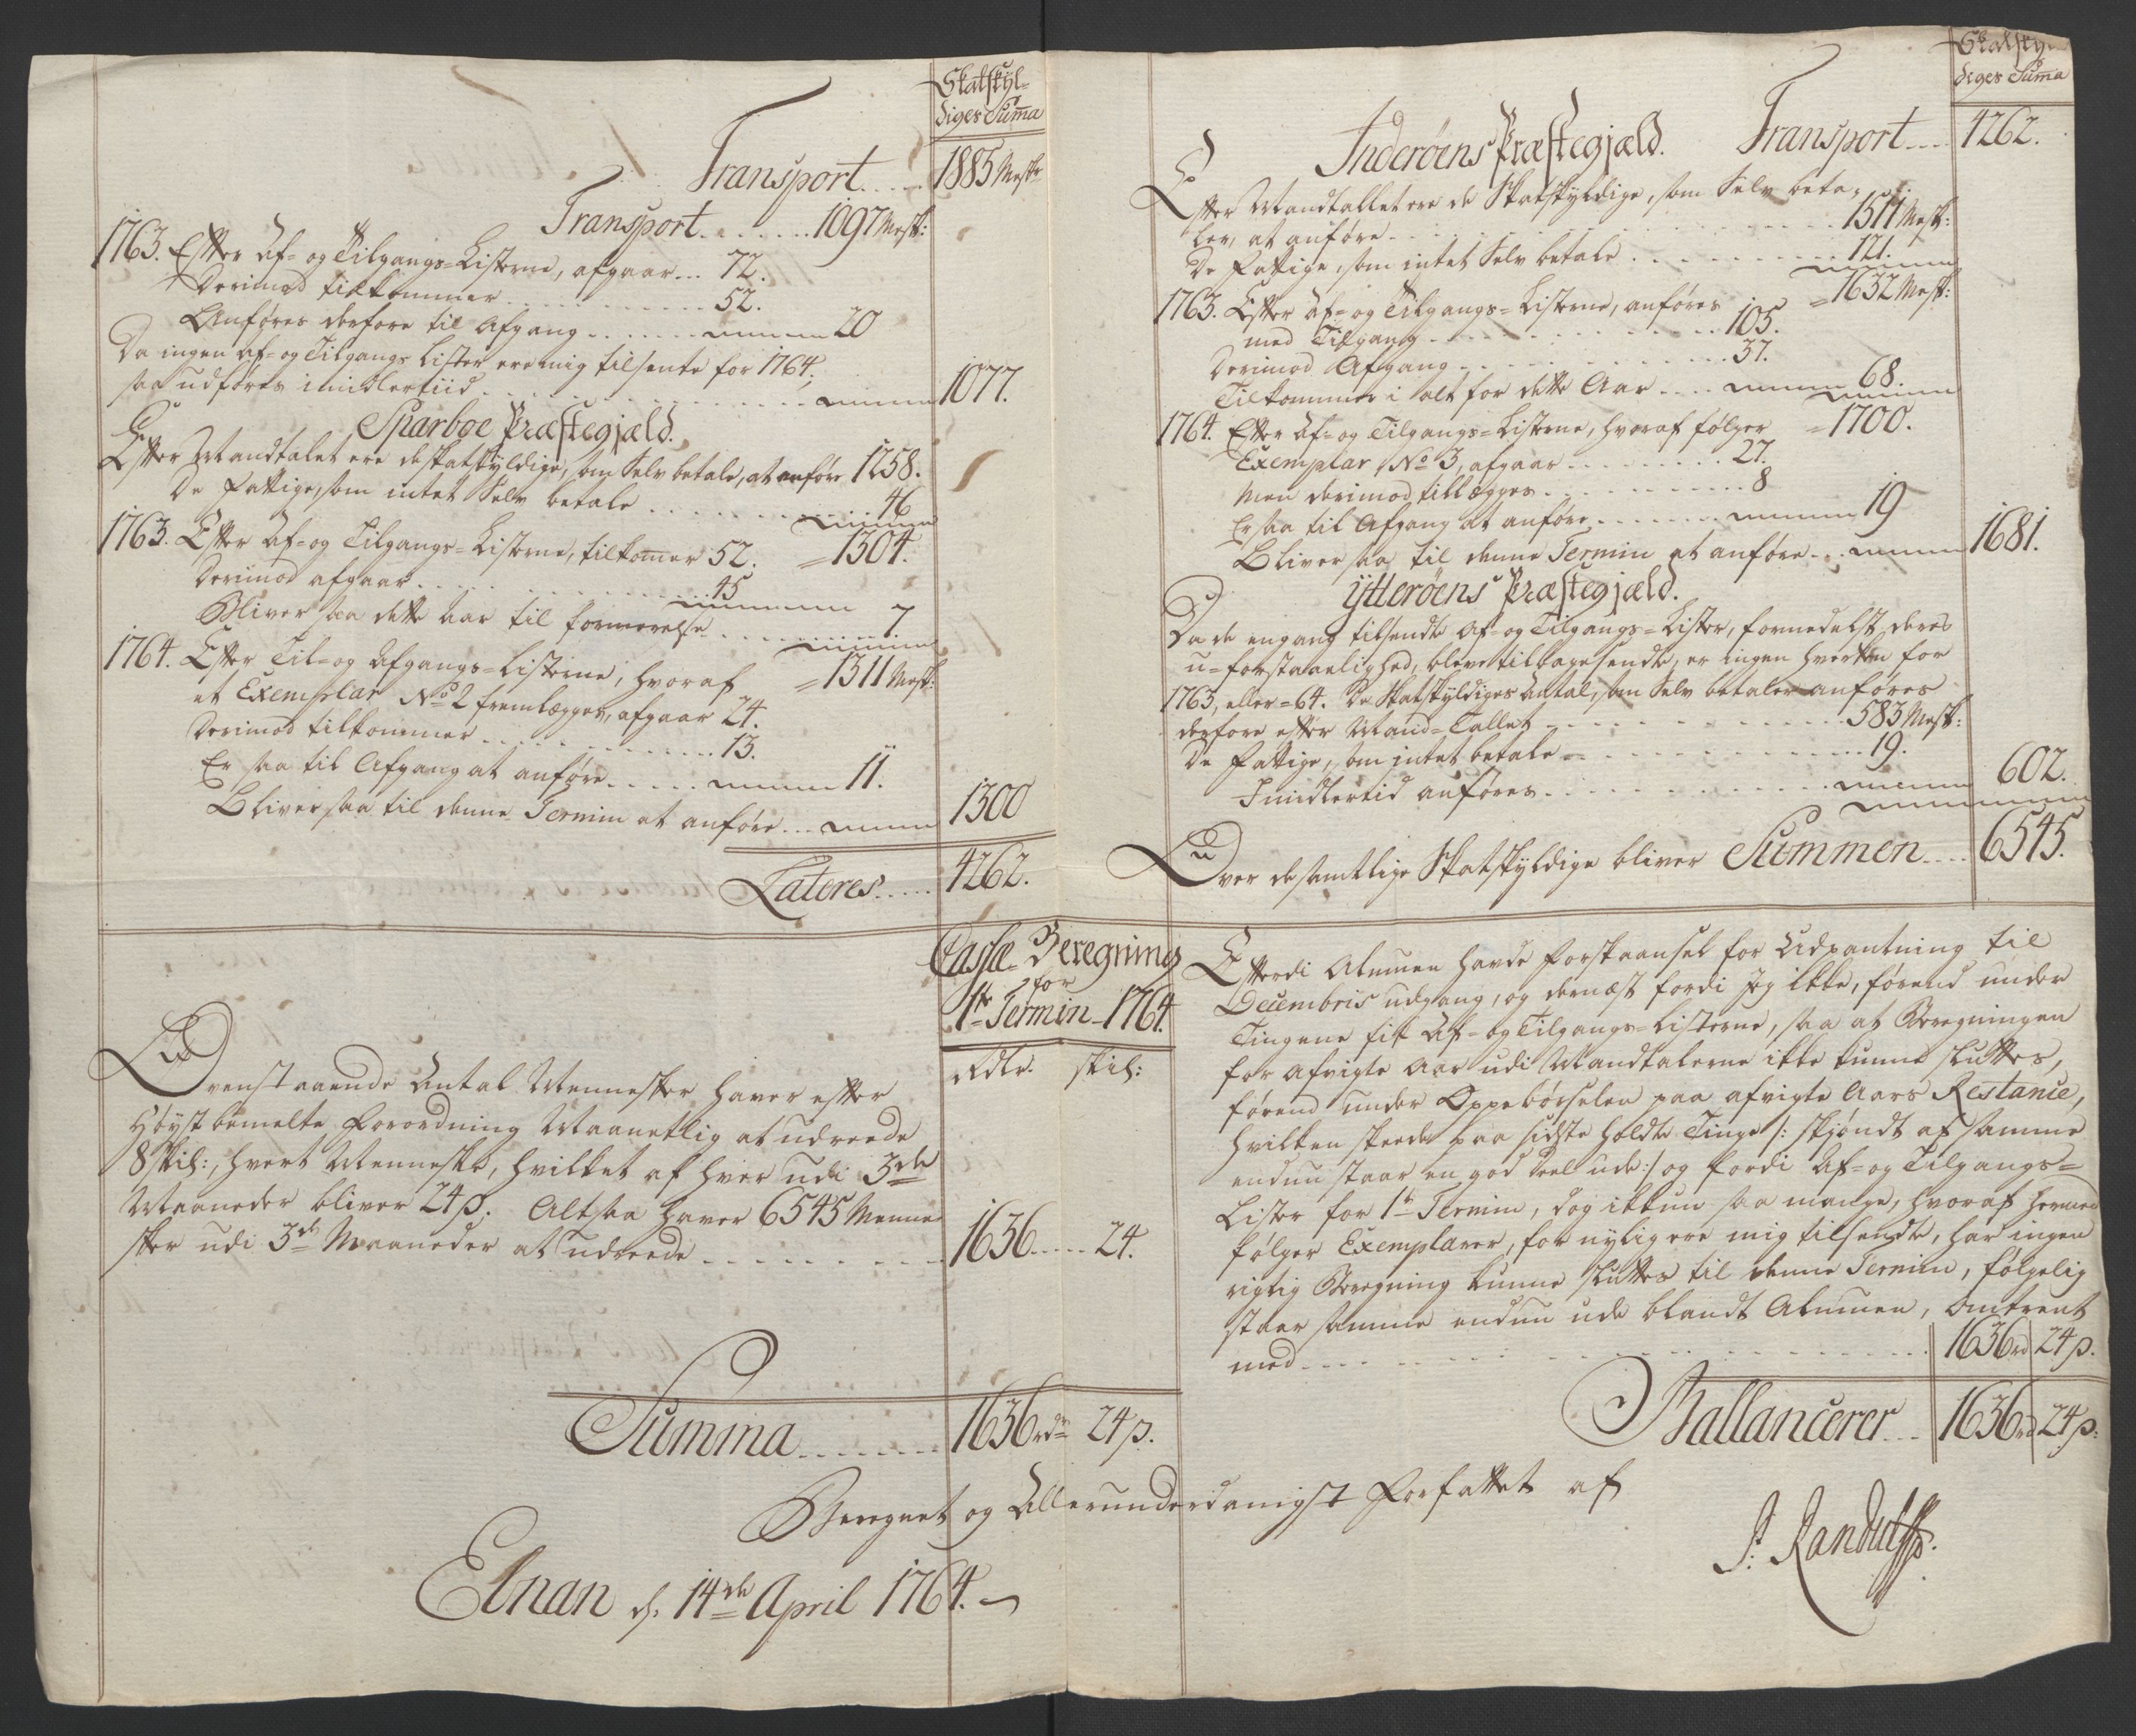 Skatskyl-
diges Suma
Transport..... 1885 Mesk:
Transport........1097 Mesk:
1763. Efter Af- og Tilgangs-Listerne, afgaar... 72.
Derimod tilkommer............52.
Anføres derfore til Afgang........20
Da ingen Af- og Tilgangs Lister ere mig tilsente for 1764,
saa udføres imidlertiid............1077.
Sparboe Præstegjæld.
Efter Mandtalet ere de skatskyldige, som Selv betale, at anføre 1258.
De Fattige, som intet Selv betale............46
1763. Efter Af- og Tilgangs-Listerne, tilkomer 52. =1304.
Derimod afgaar............45
Bliver saa dette Aar til formerelse............7
1764. Efter Til- og Afgangs-Listerne, hvoraf =1311 Mesk:
et Exemplar No 2 fremlægges, afgaar 24.
Derimod tilkommer............13.
Er saa til Afgang at anføre......11.
Bliver saa til denne Termin at anføre...1300
Lateres..... 4262.
Cassæ-Beregning
for
1te Termin 1764.
Rdlr. skil:
Ovenstaaende Antal Mennesker haver efter
Høystbemelte Forordning Maanetlig at udreede
8 skil:, hvert Menneske, hvilket af hver udi 3de
Maaneder bliver 24 s. Altsaa haver 6545 Menne
sker udi 3de Maaneder at udreede.......... 1636..... 24.
Summa....... 1636 rdr 24 s.
Skatsky
diges Suma
Inderøens Præstegjæld. Transport.... 4262.
Efter Mandtallet ere de Skatskyldige, som Selv beta-
ler, at anføre............1511 Mesk:
De Fattige, som intet Selv betale............121.
1763. Efter Af- og Tilgangs-Listerne, anføres =1632 Mesk:
med Tilgang............105.
Derimod Afgang............37.
Tilkommer i alt for dette Aar....68.
1764. Efter Af- og Tilgangs-Listerne, hvoraf følger =1700.
Exemplar No 3, afgaar.........27.
Men derimod tillægges............8
Er saa til Afgang at anføre.......19
Bliver saa til denne Termin at anføre...1681.
Ytterøens Præstegjæld.
Da de engang tilsendte Af- og Tilgangs-Lister, formedelst deres
u-forstaaelighed, bleve tilbagesendte, er ingen hverken for
1763, eller =64. De Skatskyldiges Antal, som Selv betaler anføres
derfore efter Mand-Tallet............583 Mesk:
De Fattige, som intet betale............19.
Imidlertid anføres............602.
Over desamtlige Skatskyldige bliver Summen.... 6545.
Efterdi Almuen havde forskaansel for Udpantning til
Decembris udgang, og dernæst fordi jeg ikke, førend under
Tingene fik Af- og Tilgangs-Listerne, saa at Beregningen
for afvigte Aar udi Mandtalerne ikke kunne sluttes,
førend under Oppebørselen paa afvigte Aars Restance,
hvilken skeede paa sidste holdte Tinge /: skjøndt af samme
endnu staar en god Deel ude:/ og fordi Af- og Tilgangs-
Lister for 1te Termin, dog ikkun saa mange, hvoraf hermed
følger Exemplarer, for nylig ere mig tilsendte, har ingen
rigtig Beregning kunne sluttes til denne Termin, følgelig
staar samme endnu ude blandt Almuen, omtrent
med............1636 rd 24 s.
Ballancerer... 1636 rd 24 s.
Beregnet og Allerunderdanigst Forfattet af
Elnan d. 14de April 1764.
J: Randulff.